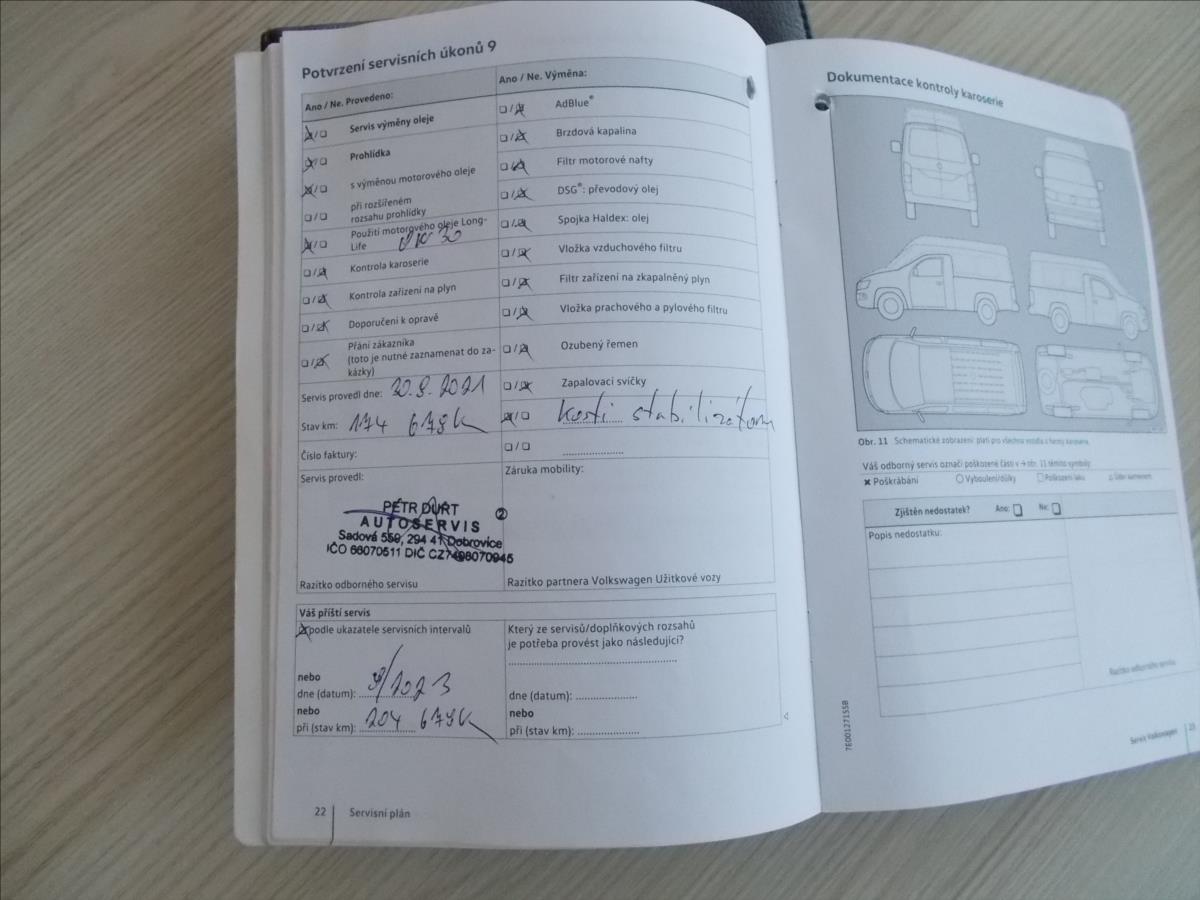 Potvrzení servisních úkonů 9
Ano / Ne. Provedeno:
Servis výměny oleje
Prohlídka
s výměnou motorového oleje
při rozšířeném
rozsahu prohlídky
Použití motorového oleje Long-
Life
Kontrola karoserie
Kontrola zařízení na plyn
Doporučení k opravě
Přání zákazníka
(toto je nutné zaznamenat do za-
kázky)
Servis provedl dne: 20.9.2021
Stav km: 174 678k
Číslo faktury:
Servis provedl:
PETR DURT
AUTOSERVIS
Sadová 559, 294 41 Dobrovice
IČO 66070511 DIČ CZ7408070945
Razítko odborného servisu
Ano / Ne. Výměna:
AdBlue®
Brzdová kapalina
Filtr motorové nafty
DSG®: převodový olej
Spojka Haldex: olej
Vložka vzduchového filtru
Filtr zařízení na zkapalněný plyn
Vložka prachového a pylového filtru
Ozubený řemen
Zapalovací svíčky
kosti stabilizátoru
Záruka mobility:
②
Razítko partnera Volkswagen Užitkové vozy
Váš příští servis
podle ukazatele servisních intervalů
nebo
dne (datum): 9/2023
nebo
při (stav km): 204 678k
Který ze servisů/doplňkových rozsahů
je potřeba provést jako následující?
dne (datum):
nebo
při (stav km):
22 Servisní plán
Dokumentace kontroly karoserie
Obr. 11 Schematické zobrazení: platí pro všechna vozidla a formy karoserie.
Váš odborný servis označí poškozené části v → obr. 11 těmito symboly:
Poškrábání Vyboulení/důlky Poškození laku Úder kamenem
Zjištěn nedostatek? Ano: Ne:
Popis nedostatku:
Razítko odborného servisu
7E0012715SB
Servis Volkswagen 23